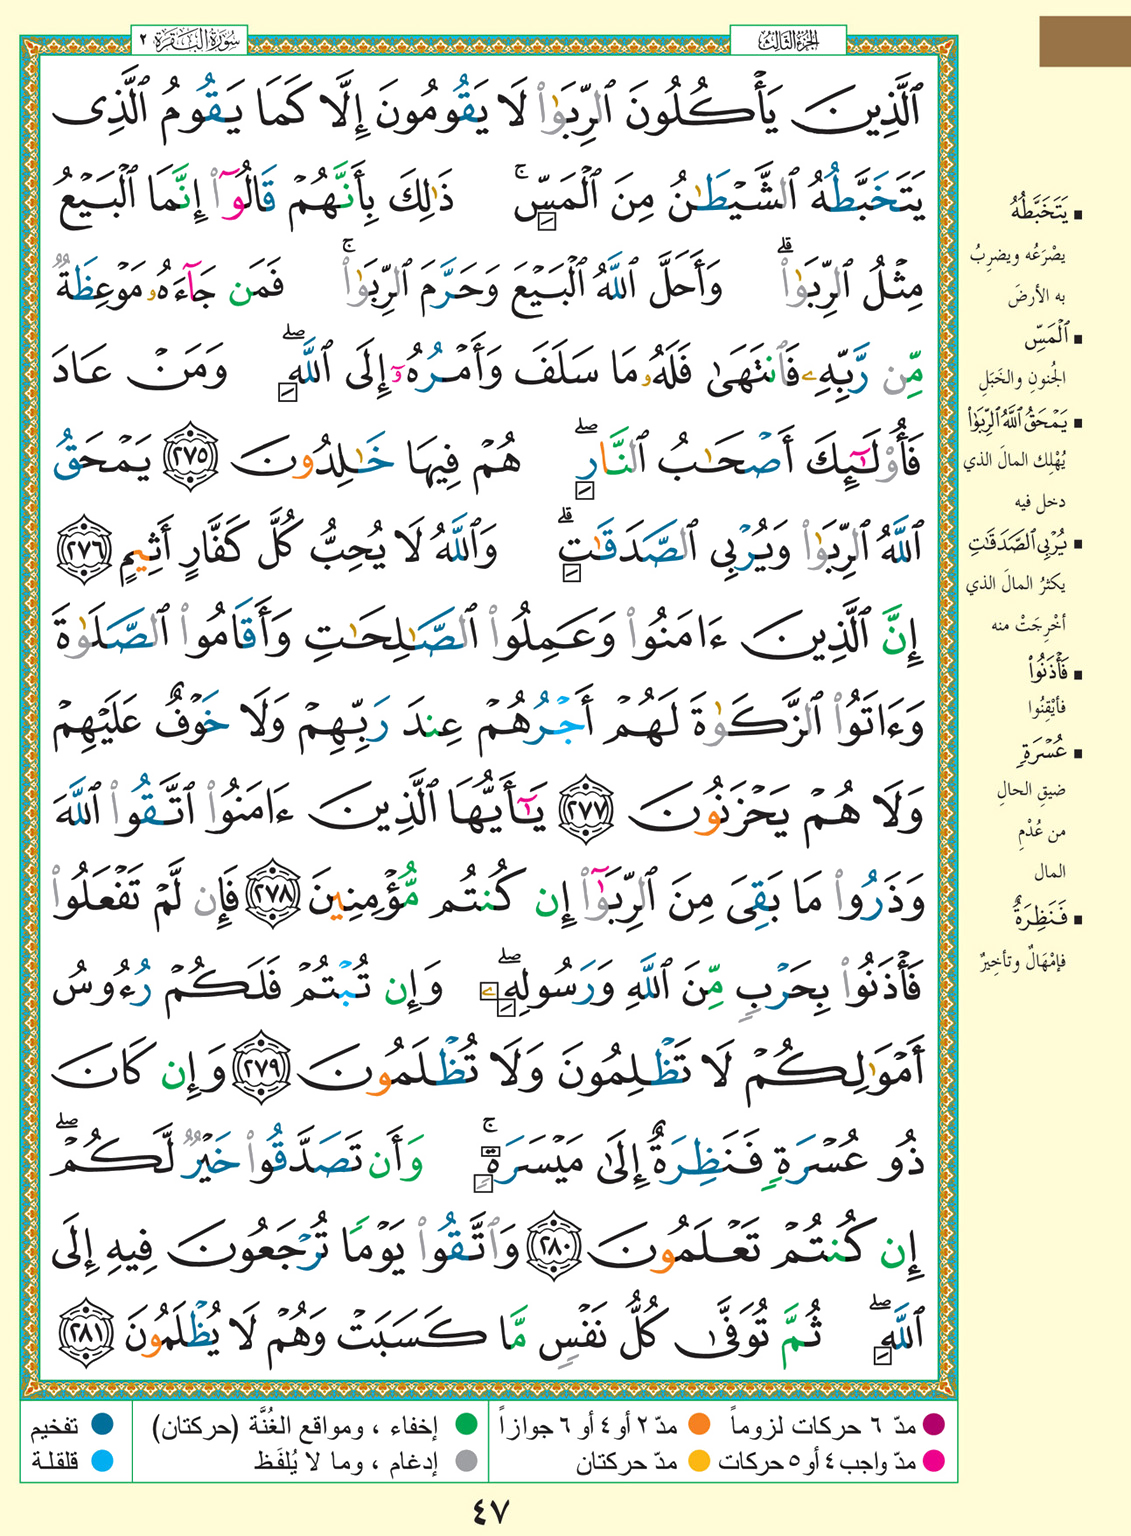 الجزء الثالث
سورة البقرة ٢
ٱلَّذِينَ يَأۡكُلُونَ ٱلرِّبَوٰاْ لَا يَقُومُونَ إِلَّا كَمَا يَقُومُ ٱلَّذِي
يَتَخَبَّطُهُ ٱلشَّيۡطَٰنُ مِنَ ٱلۡمَسِّۚ ذَٰلِكَ بِأَنَّهُمۡ قَالُوٓاْ إِنَّمَا ٱلۡبَيۡعُ
مِثۡلُ ٱلرِّبَوٰاْۗ وَأَحَلَّ ٱللَّهُ ٱلۡبَيۡعَ وَحَرَّمَ ٱلرِّبَوٰاْۚ فَمَن جَآءَهُۥ مَوۡعِظَةٞ
مِّن رَّبِّهِۦ فَٱنتَهَىٰ فَلَهُۥ مَا سَلَفَ وَأَمۡرُهُۥٓ إِلَى ٱللَّهِۖ وَمَنۡ عَادَ
فَأُوْلَٰٓئِكَ أَصۡحَٰبُ ٱلنَّارِۖ هُمۡ فِيهَا خَٰلِدُونَ ٢٧٥ يَمۡحَقُ
ٱللَّهُ ٱلرِّبَوٰاْ وَيُرۡبِي ٱلصَّدَقَٰتِۗ وَٱللَّهُ لَا يُحِبُّ كُلَّ كَفَّارٍ أَثِيمٍ ٢٧٦
إِنَّ ٱلَّذِينَ ءَامَنُواْ وَعَمِلُواْ ٱلصَّٰلِحَٰتِ وَأَقَامُواْ ٱلصَّلَوٰةَ
وَءَاتَوُاْ ٱلزَّكَوٰةَ لَهُمۡ أَجۡرُهُمۡ عِندَ رَبِّهِمۡ وَلَا خَوۡفٌ عَلَيۡهِمۡ
وَلَا هُمۡ يَحۡزَنُونَ ٢٧٧ يَٰٓأَيُّهَا ٱلَّذِينَ ءَامَنُواْ ٱتَّقُواْ ٱللَّهَ
وَذَرُواْ مَا بَقِيَ مِنَ ٱلرِّبَوٰٓاْ إِن كُنتُم مُّؤۡمِنِينَ ٢٧٨ فَإِن لَّمۡ تَفۡعَلُواْ
فَأۡذَنُواْ بِحَرۡبٖ مِّنَ ٱللَّهِ وَرَسُولِهِۦۖ وَإِن تُبۡتُمۡ فَلَكُمۡ رُءُوسُ
أَمۡوَٰلِكُمۡ لَا تَظۡلِمُونَ وَلَا تُظۡلَمُونَ ٢٧٩ وَإِن كَانَ
ذُو عُسۡرَةٖ فَنَظِرَةٌ إِلَىٰ مَيۡسَرَةٖۚ وَأَن تَصَدَّقُواْ خَيۡرٞ لَّكُمۡۖ
إِن كُنتُمۡ تَعۡلَمُونَ ٢٨٠ وَٱتَّقُواْ يَوۡمٗا تُرۡجَعُونَ فِيهِ إِلَى
ٱللَّهِۖ ثُمَّ تُوَفَّىٰ كُلُّ نَفۡسٖ مَّا كَسَبَتۡ وَهُمۡ لَا يُظۡلَمُونَ ٢٨١
▪ يَتَخَبَّطُهُ
يصْرَعُه ويضرِبُ
به الأرضَ
▪ ٱلۡمَسِّ
الجُنونِ والخَبَلِ
▪ يَمۡحَقُ ٱللَّهُ ٱلرِّبَوٰاْ
يُهْلِك المالَ الذي
دخل فيه
▪ يُرۡبِي ٱلصَّدَقَٰتِ
يكثرُ المالَ الذي
أخْرِجَتْ منه
▪ فَأۡذَنُواْ
فأيْقِنُوا
▪ عُسۡرَةٖ
ضيقِ الحالِ
من عُدْمِ
المال
▪ فَنَظِرَةٌ
فإمْهَالٌ وتأخِيرٌ
مدّ ٦ حركات لزوماً مدّ ٢ أو ٤ أو ٦ جوازاً إخفاء ، ومواقع الغُنَّة (حركتان) تفخيم
مدّ واجب ٤ أو ٥ حركات مدّ حركتان إدغام ، وما لا يُلفَظ قلقلة
٤٧